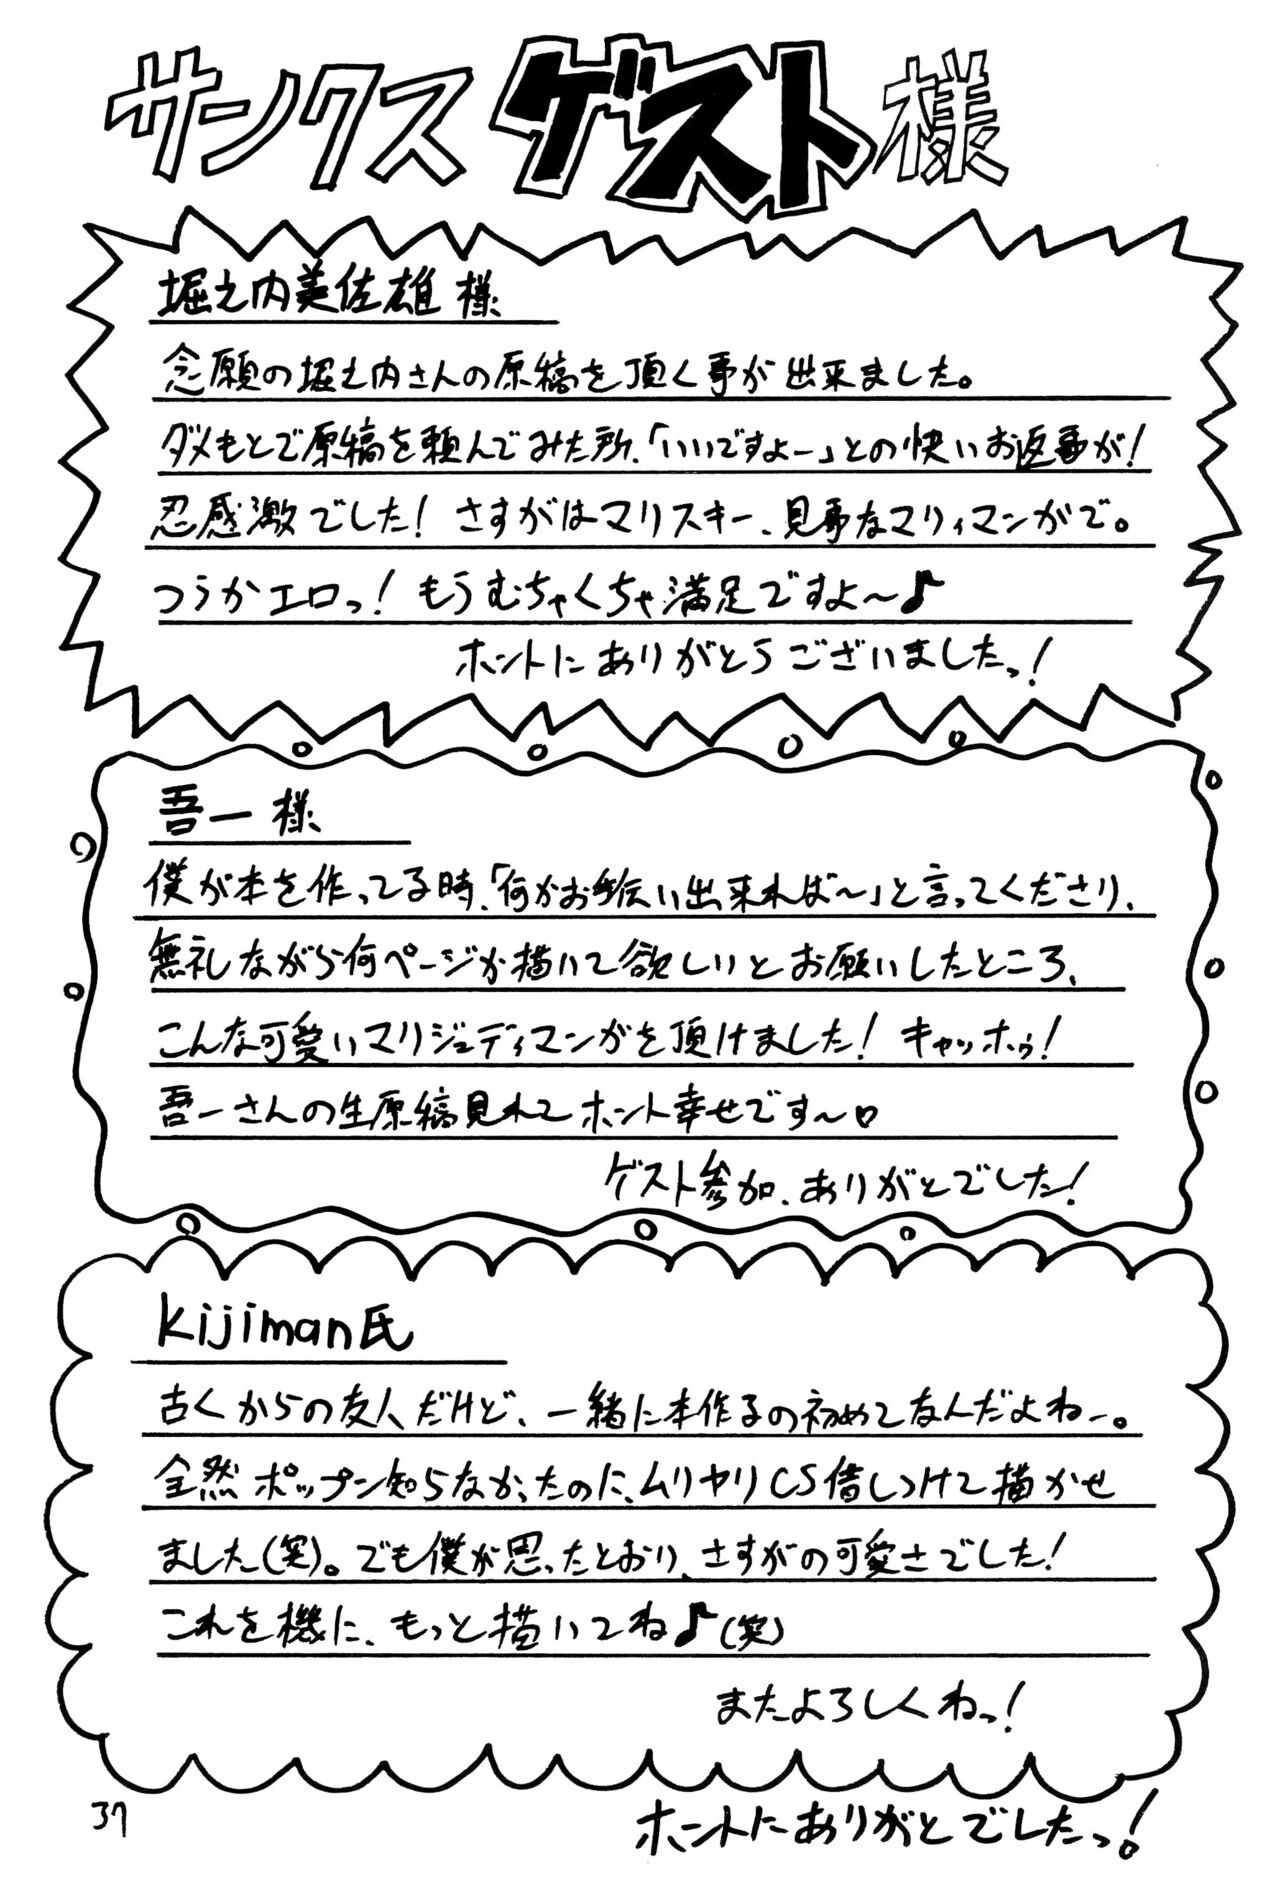 サンクスゲスト様
堀之内美佐雄様
念願の堀之内さんの原稿を頂く事が出来ました。
ダメもとで原稿を頼んでみた所、「いいですよー」との快いお返事が!
忍感激でした! さすがはマリスキー、見事なマリィマンガで。
つうかエロっ! もうむちゃくちゃ満足ですよ～♪
ホントにありがとうございましたっ!
吾一様
僕が本を作ってる時、「何かお手伝い出来れば～」と言ってくださり、
無礼ながら何ページか描いて欲しいとお願いしたところ、
こんな可愛いマリジュディマンガを頂けました! キャッホゥ!
吾一さんの生原稿見れてホント幸せです～
ゲスト参加、ありがとでした!
kijiman氏
古くからの友人だけど、一緒に本作るの初めてなんだよねー。
全然ポップン知らなかったのに、ムリヤリCS借しつけて描かせ
ました(笑)。でも僕が思ったとおり、さすがの可愛さでした!
これを機に、もっと描いてね♪(笑)
またよろしくねっ!
37
ホントにありがとでしたっ!